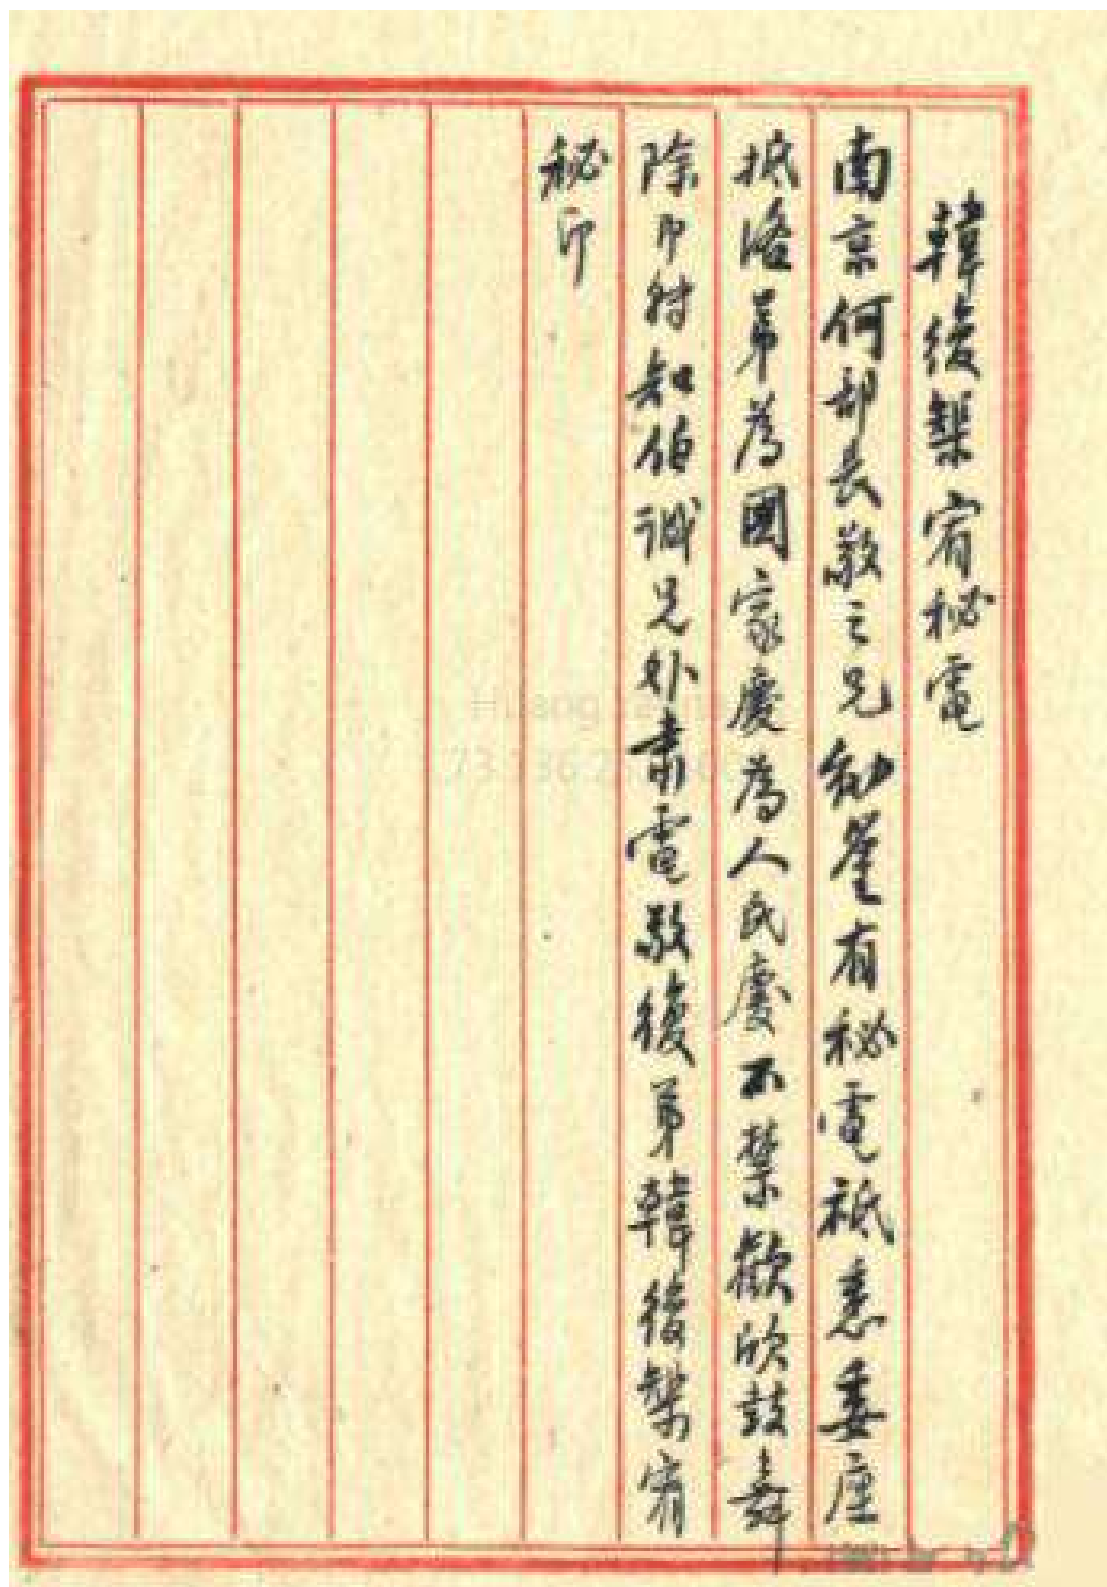 韓復榘宥秘電
南京何部長敬之兄勛鑒有秘電祗悉委座
抵洛弟為國家慶為人民慶不禁歡欣鼓舞
除即轉知伯誠兄外肅電敬復弟韓復榘宥
秘印